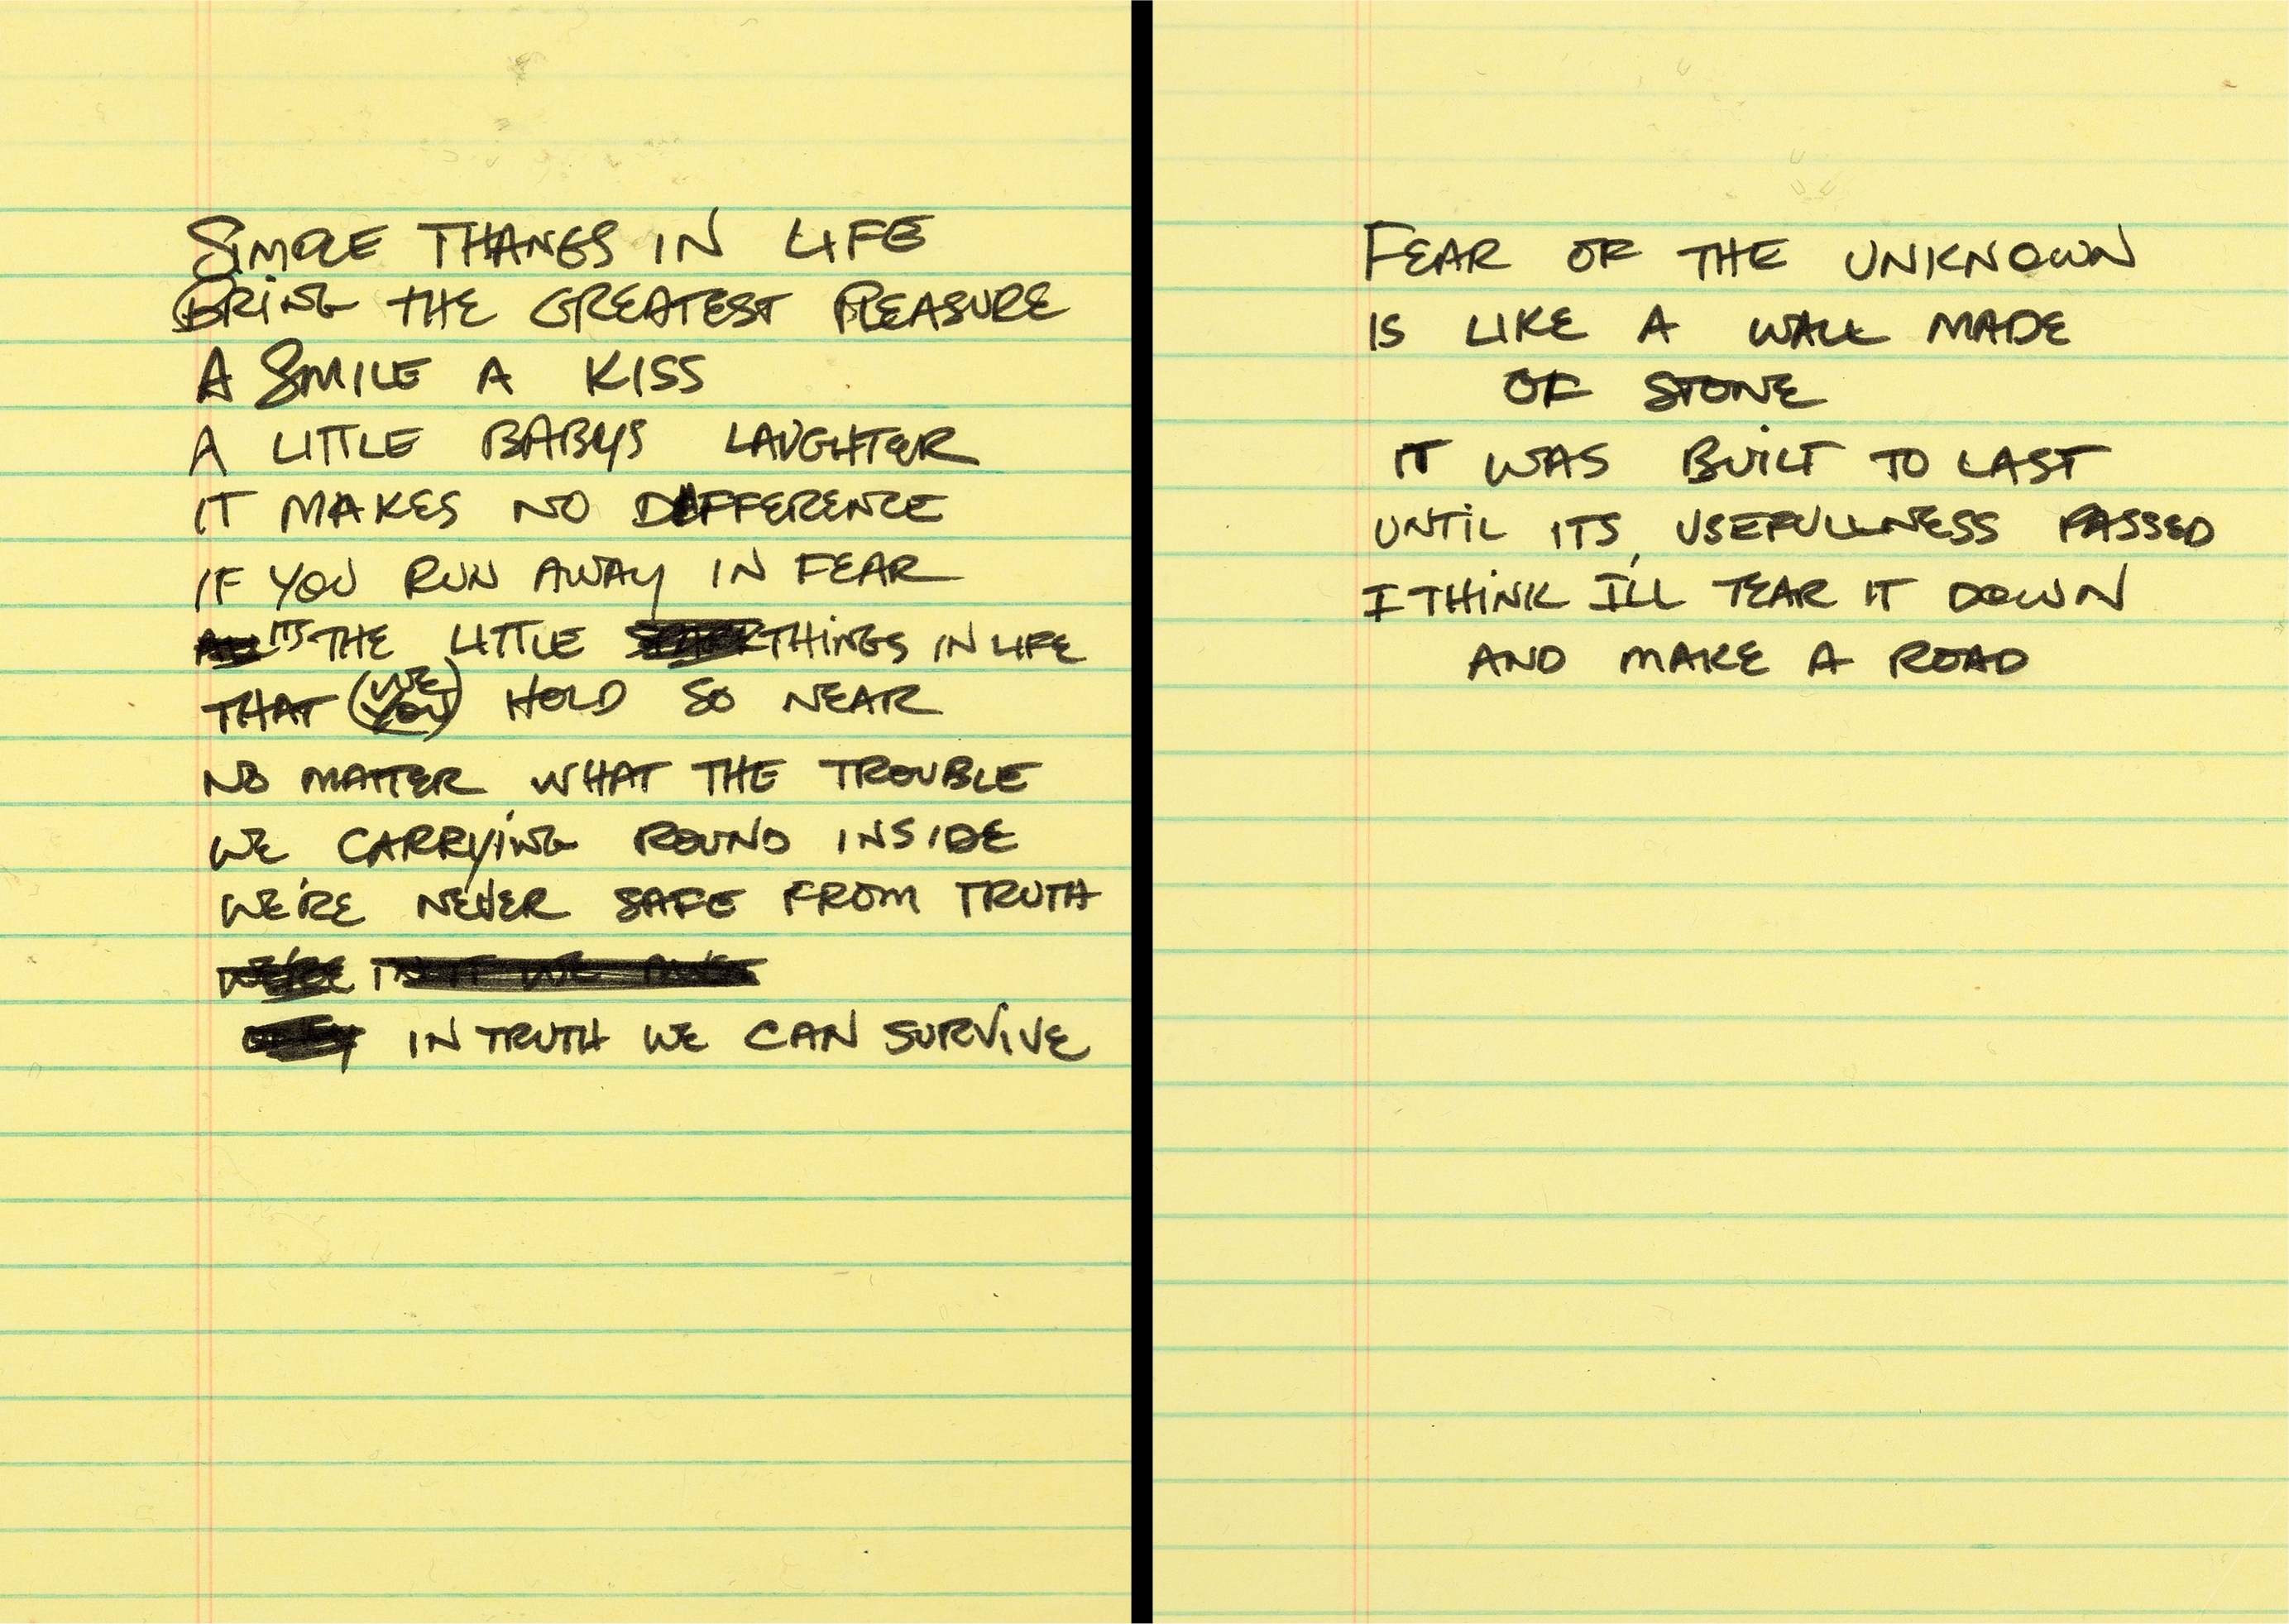 SIMPLE THANGS IN LIFE
BRING THE GREATEST PLEASURE
A SMILE A KISS
A LITTLE BABYS LAUGHTER
IT MAKES NO DIFFERENCE
IF YOU RUN AWAY IN FEAR
ITS THE LITTLE THINGS IN LIFE
THAT (WE YOU) HOLD SO NEAR
NO MATTER WHAT THE TROUBLE
WE CARRYING ROUND INSIDE
WE'RE NEVER SAFE FROM TRUTH
WE'RE
IN TRUTH WE CAN SURVIVE
FEAR OF THE UNKNOWN
IS LIKE A WALL MADE
OF STONE
IT WAS BUILT TO LAST
UNTIL ITS USEFULLNESS PASSED
I THINK I'LL TEAR IT DOWN
AND MAKE A ROAD